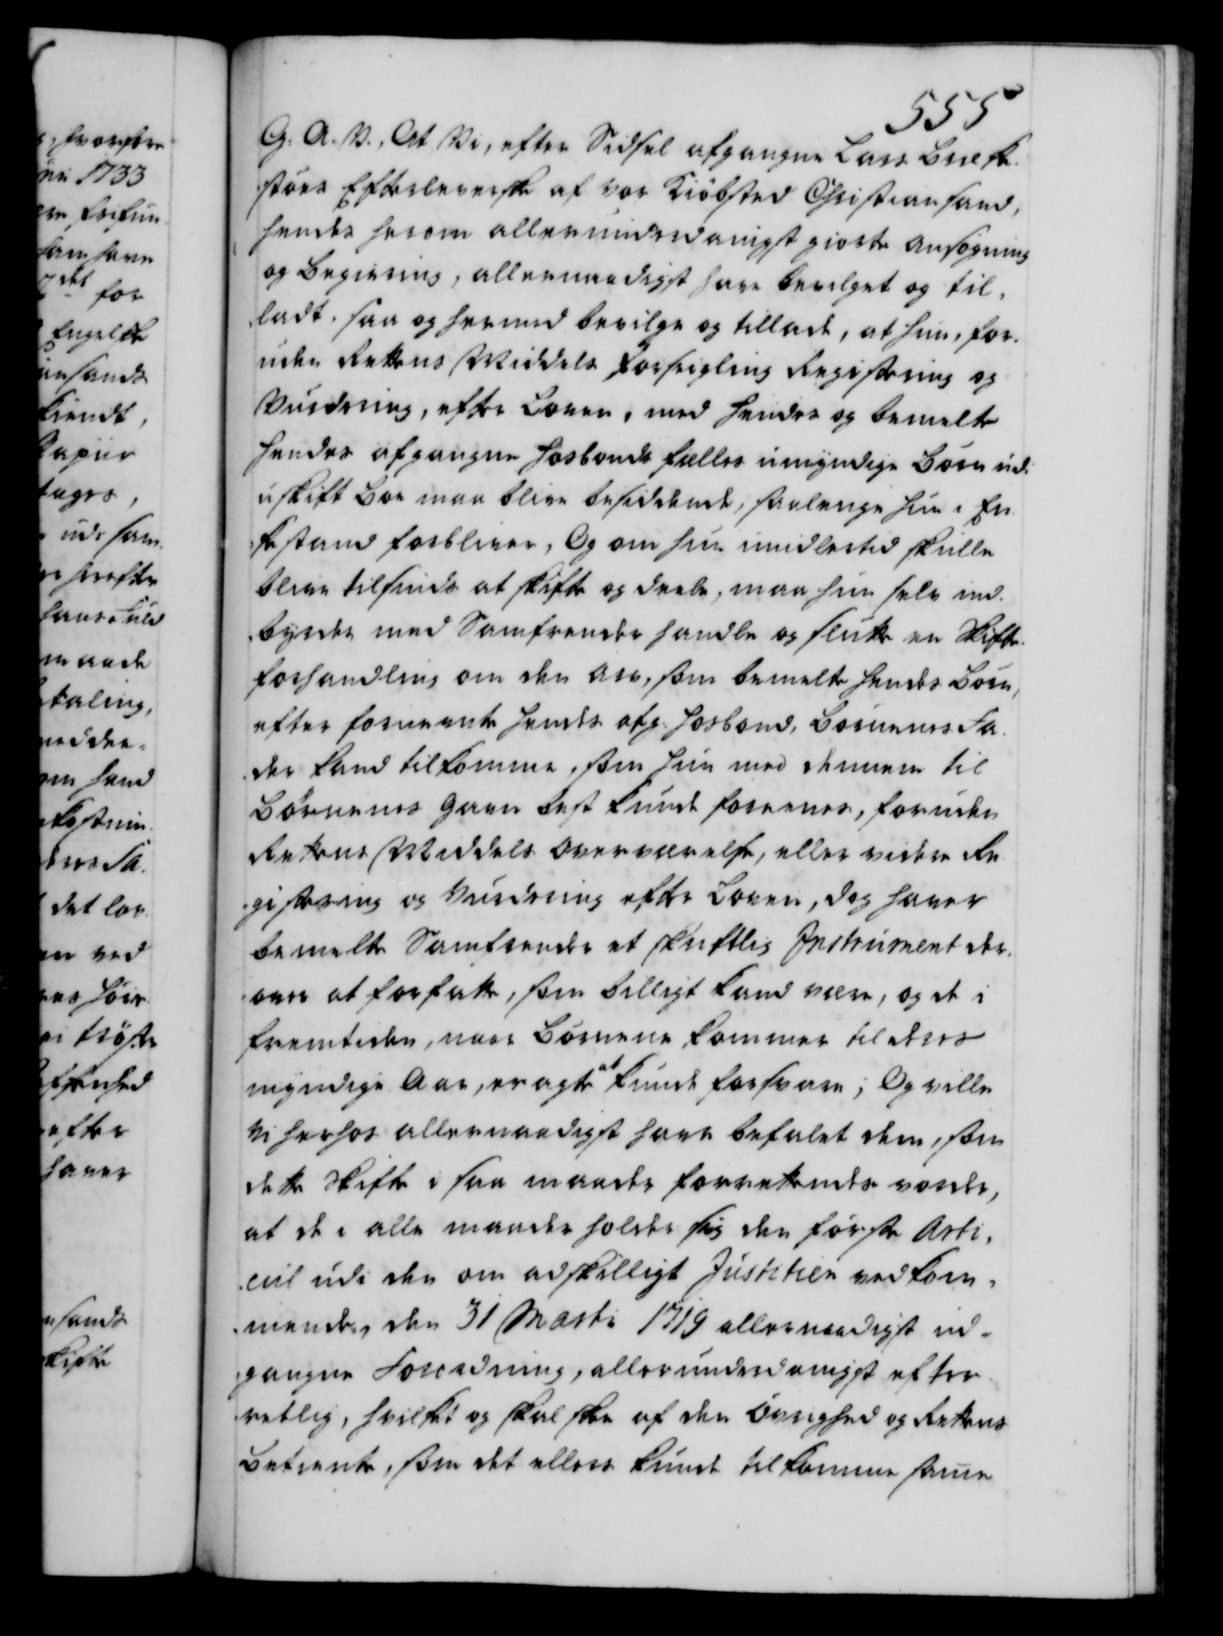 555
G. A. V., At Vi, efter Sidsel afgangne Lars
støers Efterleverske af vor Kiøbsted Christiansand,
hendes herom allerunderdanigst giorte ansøgning
og Begiering, allernaadigst have bevilget og til-
ladt. saa og hermed bevilge og tillade, at hun, for-
uden Rettens Middels Forseigling Registering og
Vurdering, efter Loven, med hendes og bemelte
hendes afgangne Hosbonds fælles umyndige Børn udi
uskift Boe maa blive besiddende, saalenge hun i En-
kestand forbliver, Og om hun imidlertid skulle
blive tilsinds at skifte og deele, maa hun selv ind-
byrdes med Samfrender handle og slutte en Skifte-
forhandling om den arv, som bemelte hendes Børn,
efter fornevnte hendes afg. Hosbond, Børnenes Fa-
der kand tilkomme, som hun med dennem til
Børnenes Gavn best kunde foreenes, foruden
Rettens Middels overværelse, eller videre Re-
gistering og Vurdering efter Loven, dog haver
bemelte Samfrender et skriftlig Instrument der-
over at forfatte, som billigt kand være, og de i
fremtiden, naar Børnene kommer til deres
myndige Aar, eragte at kunde forsvare; Og ville
Vi herhos allernaadigst have befalet dem, som
dette Skifte i saa maade forrettendes vorde,
at de i alle maader holder sig den første Arti-
cul udi den om adskilligt Justitien vedkom-
mende, den 31 Marti 1719 allernaadigst ud-
gangne Forordning, allerunderdanigst efter-
rettlig, hvilket og skal skee af den Øvrighed og Rettens
Betiente, som det ellers kunde tilkomme samme